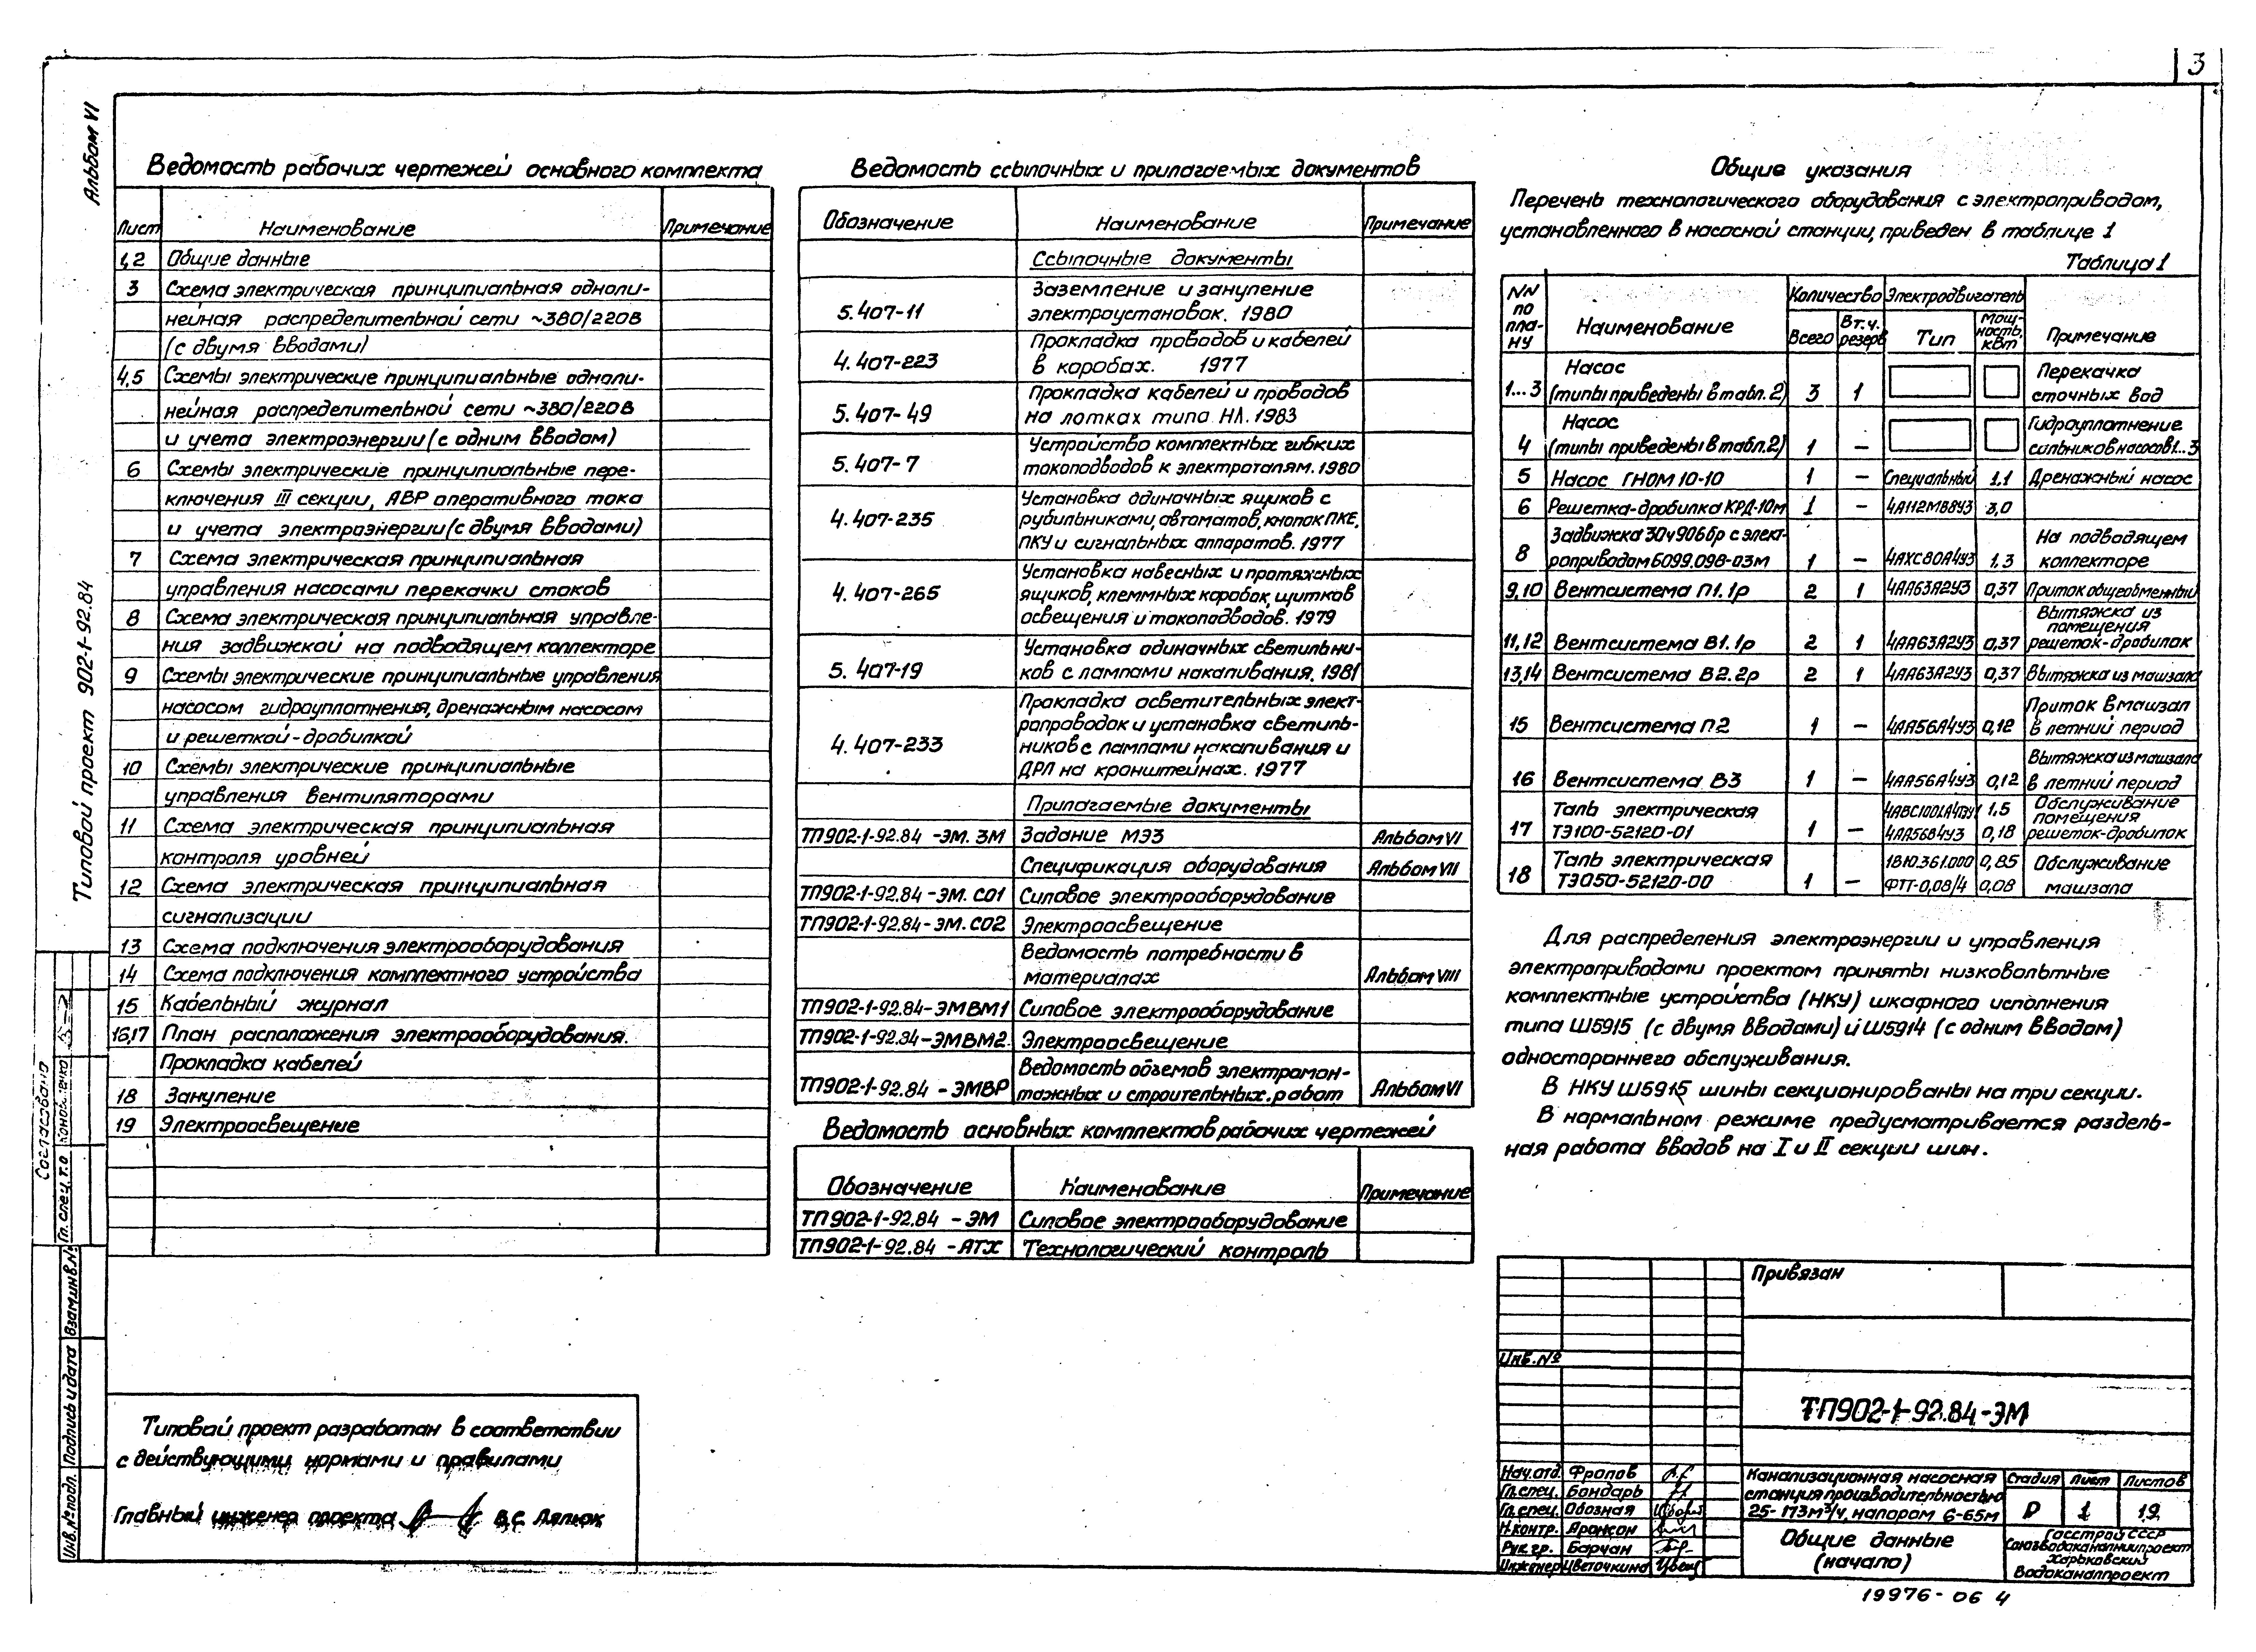 3
Альбом VI
Типовой проект 902-1-92.84
Ведомость рабочих чертежей основного комплекта
Лист Наименование Примечание
1,2 Общие данные
3 Схема электрическая принципиальная одноли-
нейная распределительной сети ~380/220В
(с двумя вводами)
4,5 Схемы электрические принципиальные одноли-
нейная распределительной сети ~380/220В
и учета электроэнергии (с одним вводом)
6 Схемы электрические принципиальные пере-
ключения III секции, АВР оперативного тока
и учета электроэнергии (с двумя вводами)
7 Схема электрическая принципиальная
управления насосами перекачки стоков
8 Схема электрическая принципиальная управле-
ния задвижкой на подводящем коллекторе
9 Схемы электрические принципиальные управления
насосом гидроуплотнения, дренажным насосом
и решеткой-дробилкой
10 Схемы электрические принципиальные
управления вентиляторами
11 Схема электрическая принципиальная
контроля уровней
12 Схема электрическая принципиальная
сигнализации
13 Схема подключения электрооборудования
14 Схема подключения комплектного устройства
15 Кабельный журнал
16,17 План расположения электрооборудования.
Прокладка кабелей
18 Зануление
19 Электроосвещение
Ведомость ссылочных и прилагаемых документов
Обозначение Наименование Примечание
Ссылочные документы
5.407-11 Заземление и зануление
электроустановок. 1980
4.407-223 Прокладка проводов и кабелей
в коробах. 1977
5.407-49 Прокладка кабелей и проводов
на лотках типа НЛ. 1983
5.407-7 Устройство комплектных гибких
токоподводов к электроталям. 1980
4.407-235 Установка одиночных ящиков с
рубильниками, автоматов, кнопок ПКЕ,
ПКУ и сигнальных аппаратов. 1977
4.407-265 Установка навесных и протяжных
ящиков, клеммных коробок, щитков
освещения и токоподводов. 1979
5.407-19 Установка одиночных светильни-
ков с лампами накаливания. 1981
4.407-233 Прокладка осветительных элект-
ропроводок и установка светиль-
ников с лампами накаливания и
ДРЛ на кронштейнах. 1977
Прилагаемые документы
ТП902-1-92.84 -ЭМ. ЗМ Задание МЭЗ Альбом VI
Спецификация оборудования Альбом VII
ТП902-1-92.84-ЭМ. СО1 Силовое электрооборудование
ТП902-1-92.84-ЭМ. СО2 Электроосвещение
Ведомость потребности в
материалах Альбом VIII
ТП902-1-92.84-ЭМВМ1 Силовое электрооборудование
ТП902-1-92.84-ЭМВМ2 Электроосвещение
ТП902-1-92.84-ЭМВР Ведомость объемов электромон-
тажных и строительных работ Альбом VI
Ведомость основных комплектов рабочих чертежей
Обозначение Наименование Примечание
ТП902-1-92.84 -ЭМ Силовое электрооборудование
ТП902-1-92.84 -АТХ Технологический контроль
Общие указания
Перечень технологического оборудования с электроприводом,
установленного в насосной станции, приведен в таблице 1
Таблица 1
NN по пла-ну Наименование Количество Электродвигатель Примечание
Всего В т.ч. резерв Тип Мощ-ность, кВт
1...3 Насос (типы приведены в табл. 2) 3 1 Перекачка сточных вод
4 Насос (типы приведены в табл. 2) 1 – Гидроуплотнение сальников насосов 1...3
5 Насос ГНОМ 10-10 1 – Специальный 1.1 Дренажный насос
6 Решетка-дробилка КРД-10м 1 – 4А112МВ8У3 3,0
8 Задвижка 30ч906бр с элект-роприводом Б099.098-03м 1 – 4АХС80А4У3 1.3 На подводящем коллекторе
9,10 Вентсистема П1.1р 2 1 4АА63А2У3 0,37 Приток общеобменный
11,12 Вентсистема В1.1р 2 1 4АА63А2У3 0,37 Вытяжка из помещения решеток-дробилок
13,14 Вентсистема В2.2р 2 1 4АА63А2У3 0,37 Вытяжка из машзала
15 Вентсистема П2 1 – 4АА56А4У3 0,12 Приток в машзал в летний период
16 Вентсистема В3 1 – 4АА56А4У3 0,12 Вытяжка из машзала в летний период
17 Таль электрическая ТЭ100-52120-01 1 – 1.5 4АА56В4У3 0,18 Обслуживание помещения решеток-дробилок
18 Таль электрическая ТЭ050-52120-00 1 – 18Ю.361.000 0,85 ФТТ-0,08/4 0,08 Обслуживание машзала
Для распределения электроэнергии и управления
электроприводами проектом приняты низковольтные
комплектные устройства (НКУ) шкафного исполнения
типа Ш5915 (с двумя вводами) и Ш5914 (с одним вводом)
одностороннего обслуживания.
В НКУ Ш5915 шины секционированы на три секции.
В нормальном режиме предусматривается раздель-
ная работа вводов на I и II секции шин.
Согласовано
Гл. спец. т.о
Инв.№подл. Подпись и дата Взам.инв.№
Типовой проект разработан в соответствии
с действующими нормами и правилами
Главный инженер проекта В.С. Лялюк
Привязан
Инв.№
ТП902-1-92.84-ЭМ
Нач.отд. Фролов
Гл.спец. Бондарь
Гл.спец. Обозная
Н.контр. Аронсон
Рук.гр. Барчан
Инженер Цветочкина
Канализационная насосная
станция производительностью
25-173м³/ч, напором 6-65м
Стадия Лист Листов
Р 1 19
Общие данные
(начало)
Госстрой СССР
Союзводоканалниипроект
Харьковский
Водоканалпроект
19976-06 4